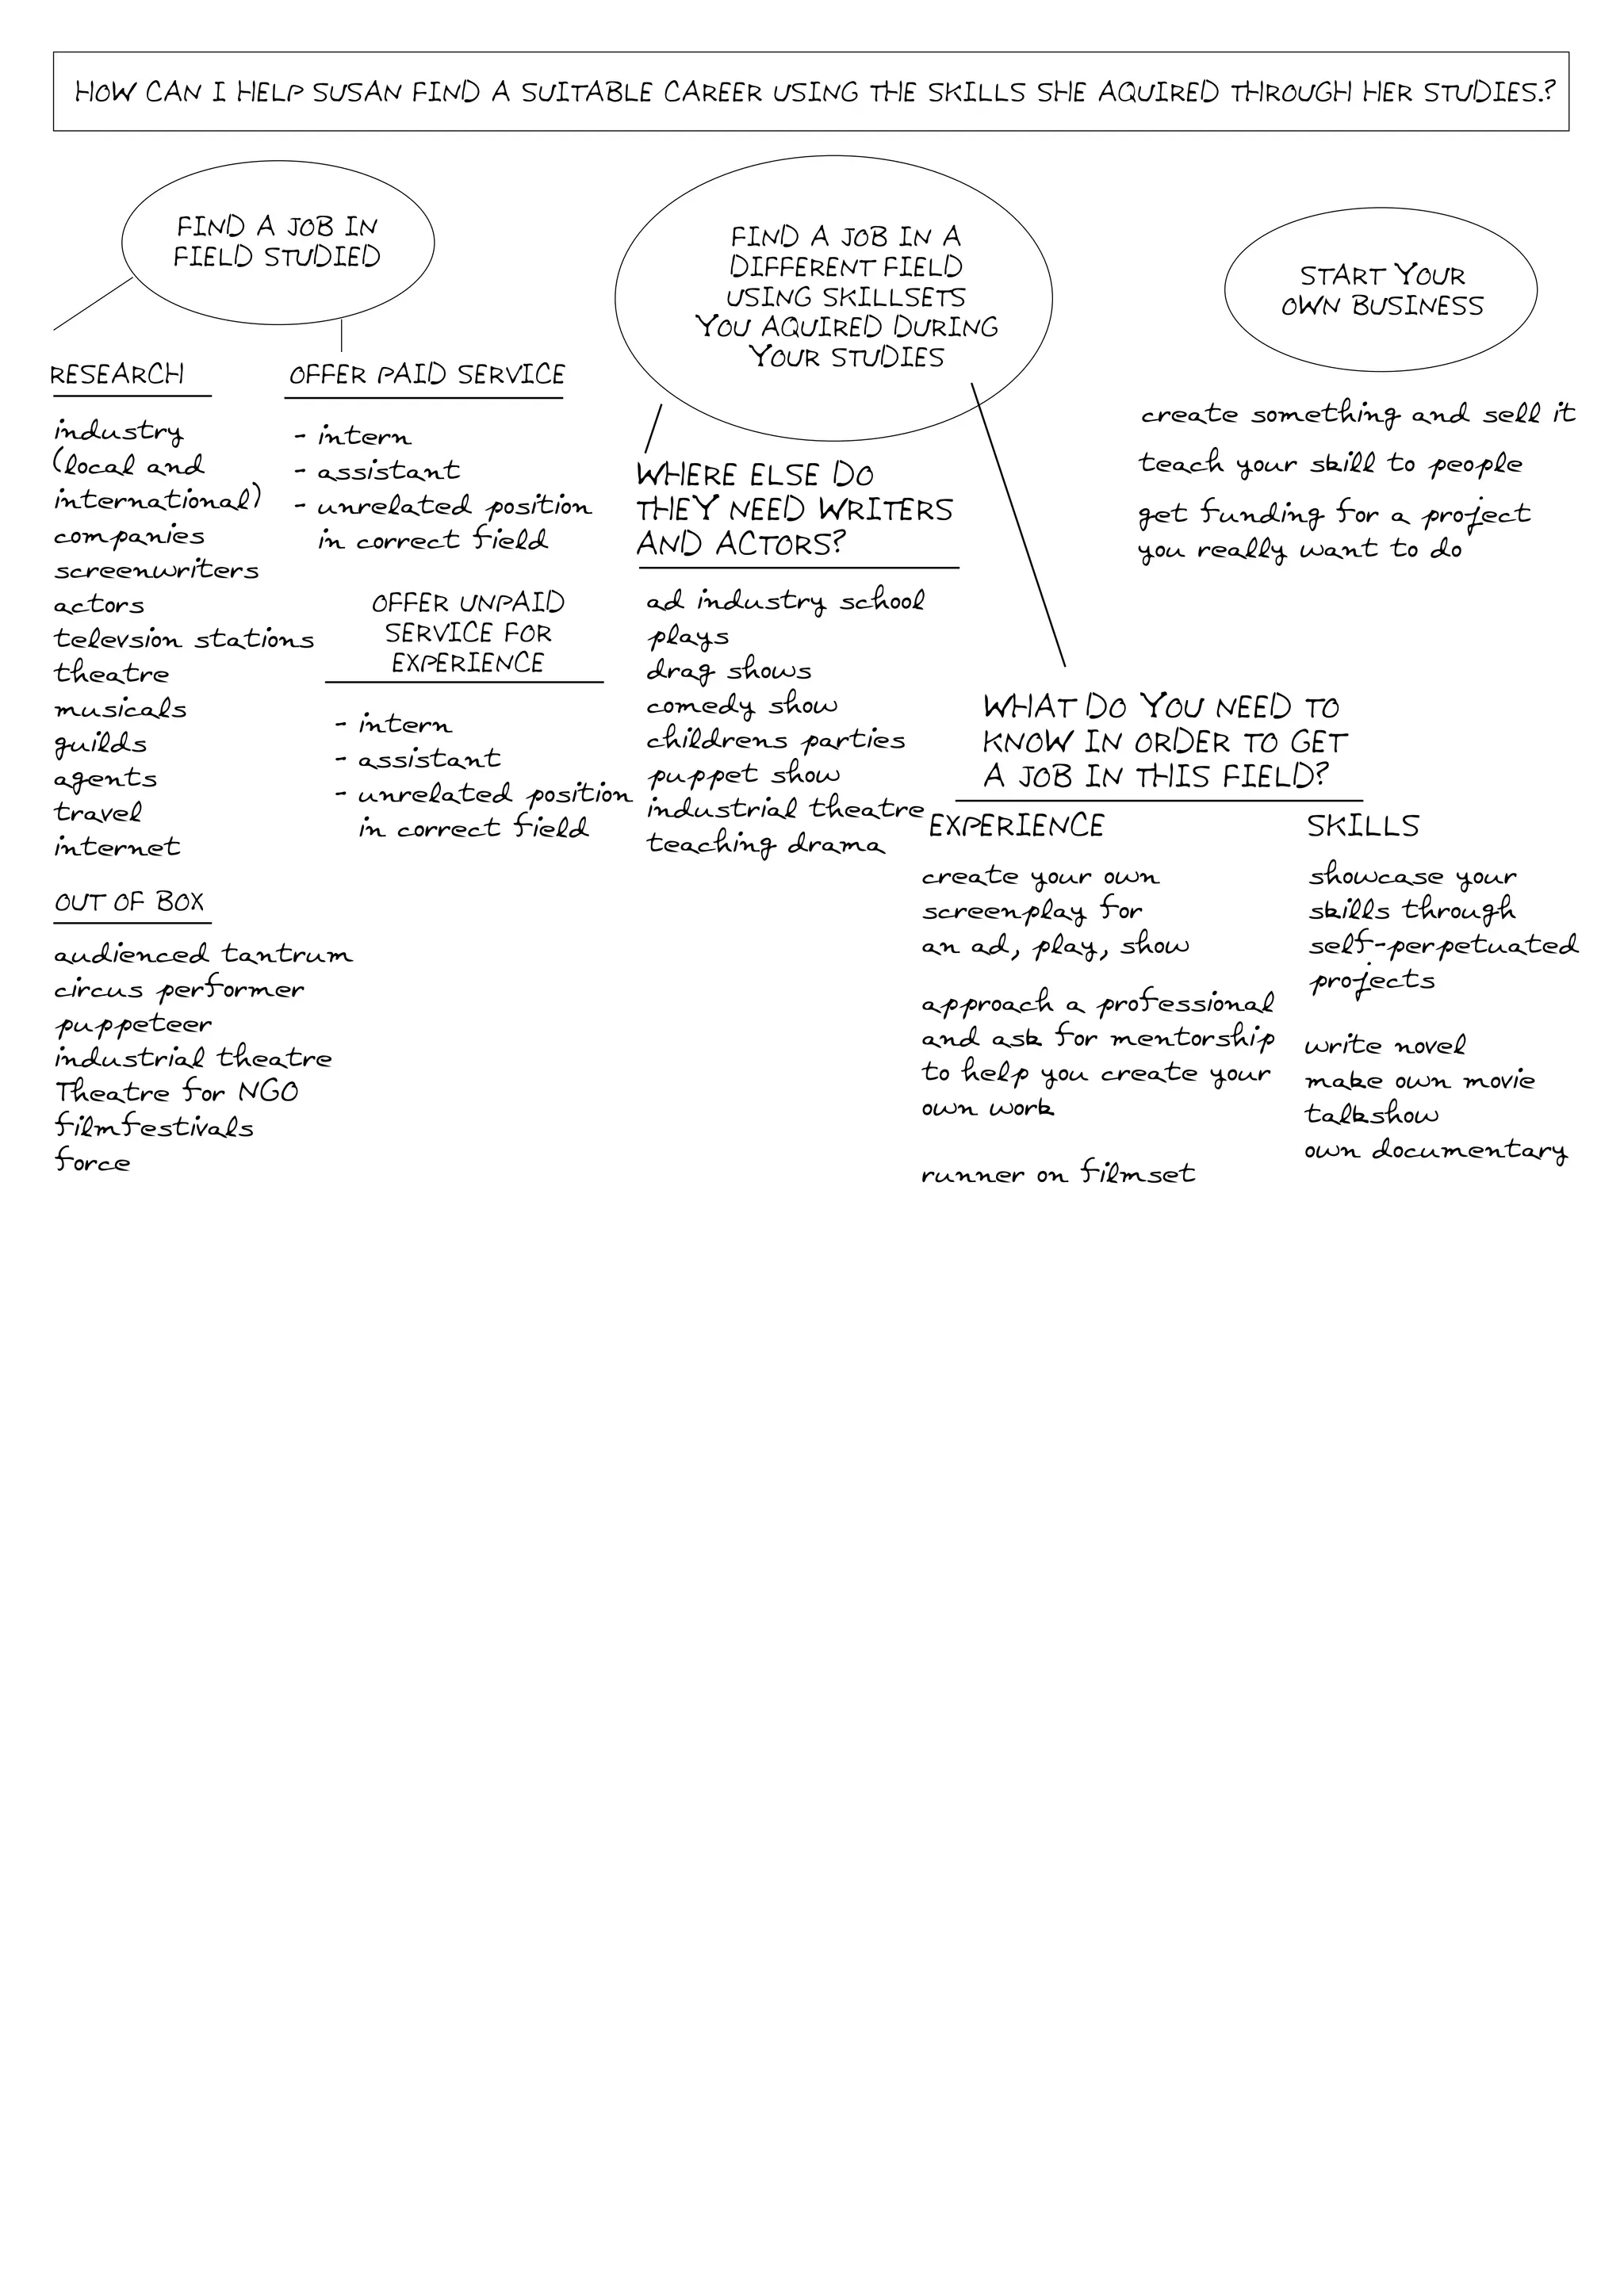 HOW CAN I HELP SUSAN FIND A SUITABLE CAREER USING THE SKILLS SHE AQUIRED THROUGH HER STUDIES.?
FIND A JOB IN
FIELD STUDIED
RESEARCH
industry
(local and
international)
companies
screenwriters
actors
televsion stations
theatre
musicals
guilds
agents
travel
internet
OUT OF BOX
audienced tantrum
circus performer
puppeteer
industrial theatre
Theatre for NGO
filmfestivals
force
OFFER PAID SERVICE
- intern
- assistant
- unrelated position
in correct field
OFFER UNPAID
SERVICE FOR
EXPERIENCE
- intern
- assistant
- unrelated position
in correct field
FIND A JOB IN A
DIFFERENT FIELD
USING SKILLSETS
YOU AQUIRED DURING
YOUR STUDIES
WHERE ELSE DO
THEY NEED WRITERS
AND ACTORS?
ad industry school
plays
drag shows
comedy show
childrens parties
puppet show
industrial theatre
teaching drama
WHAT DO YOU NEED TO
KNOW IN ORDER TO GET
A JOB IN THIS FIELD?
EXPERIENCE
create your own
screenplay for
an ad, play, show
approach a professional
and ask for mentorship
to help you create your
own work
runner on filmset
SKILLS
showcase your
skills through
self-perpetuated
projects
write novel
make own movie
talkshow
own documentary
START YOUR
OWN BUSINESS
create something and sell it
teach your skill to people
get funding for a project
you really want to do